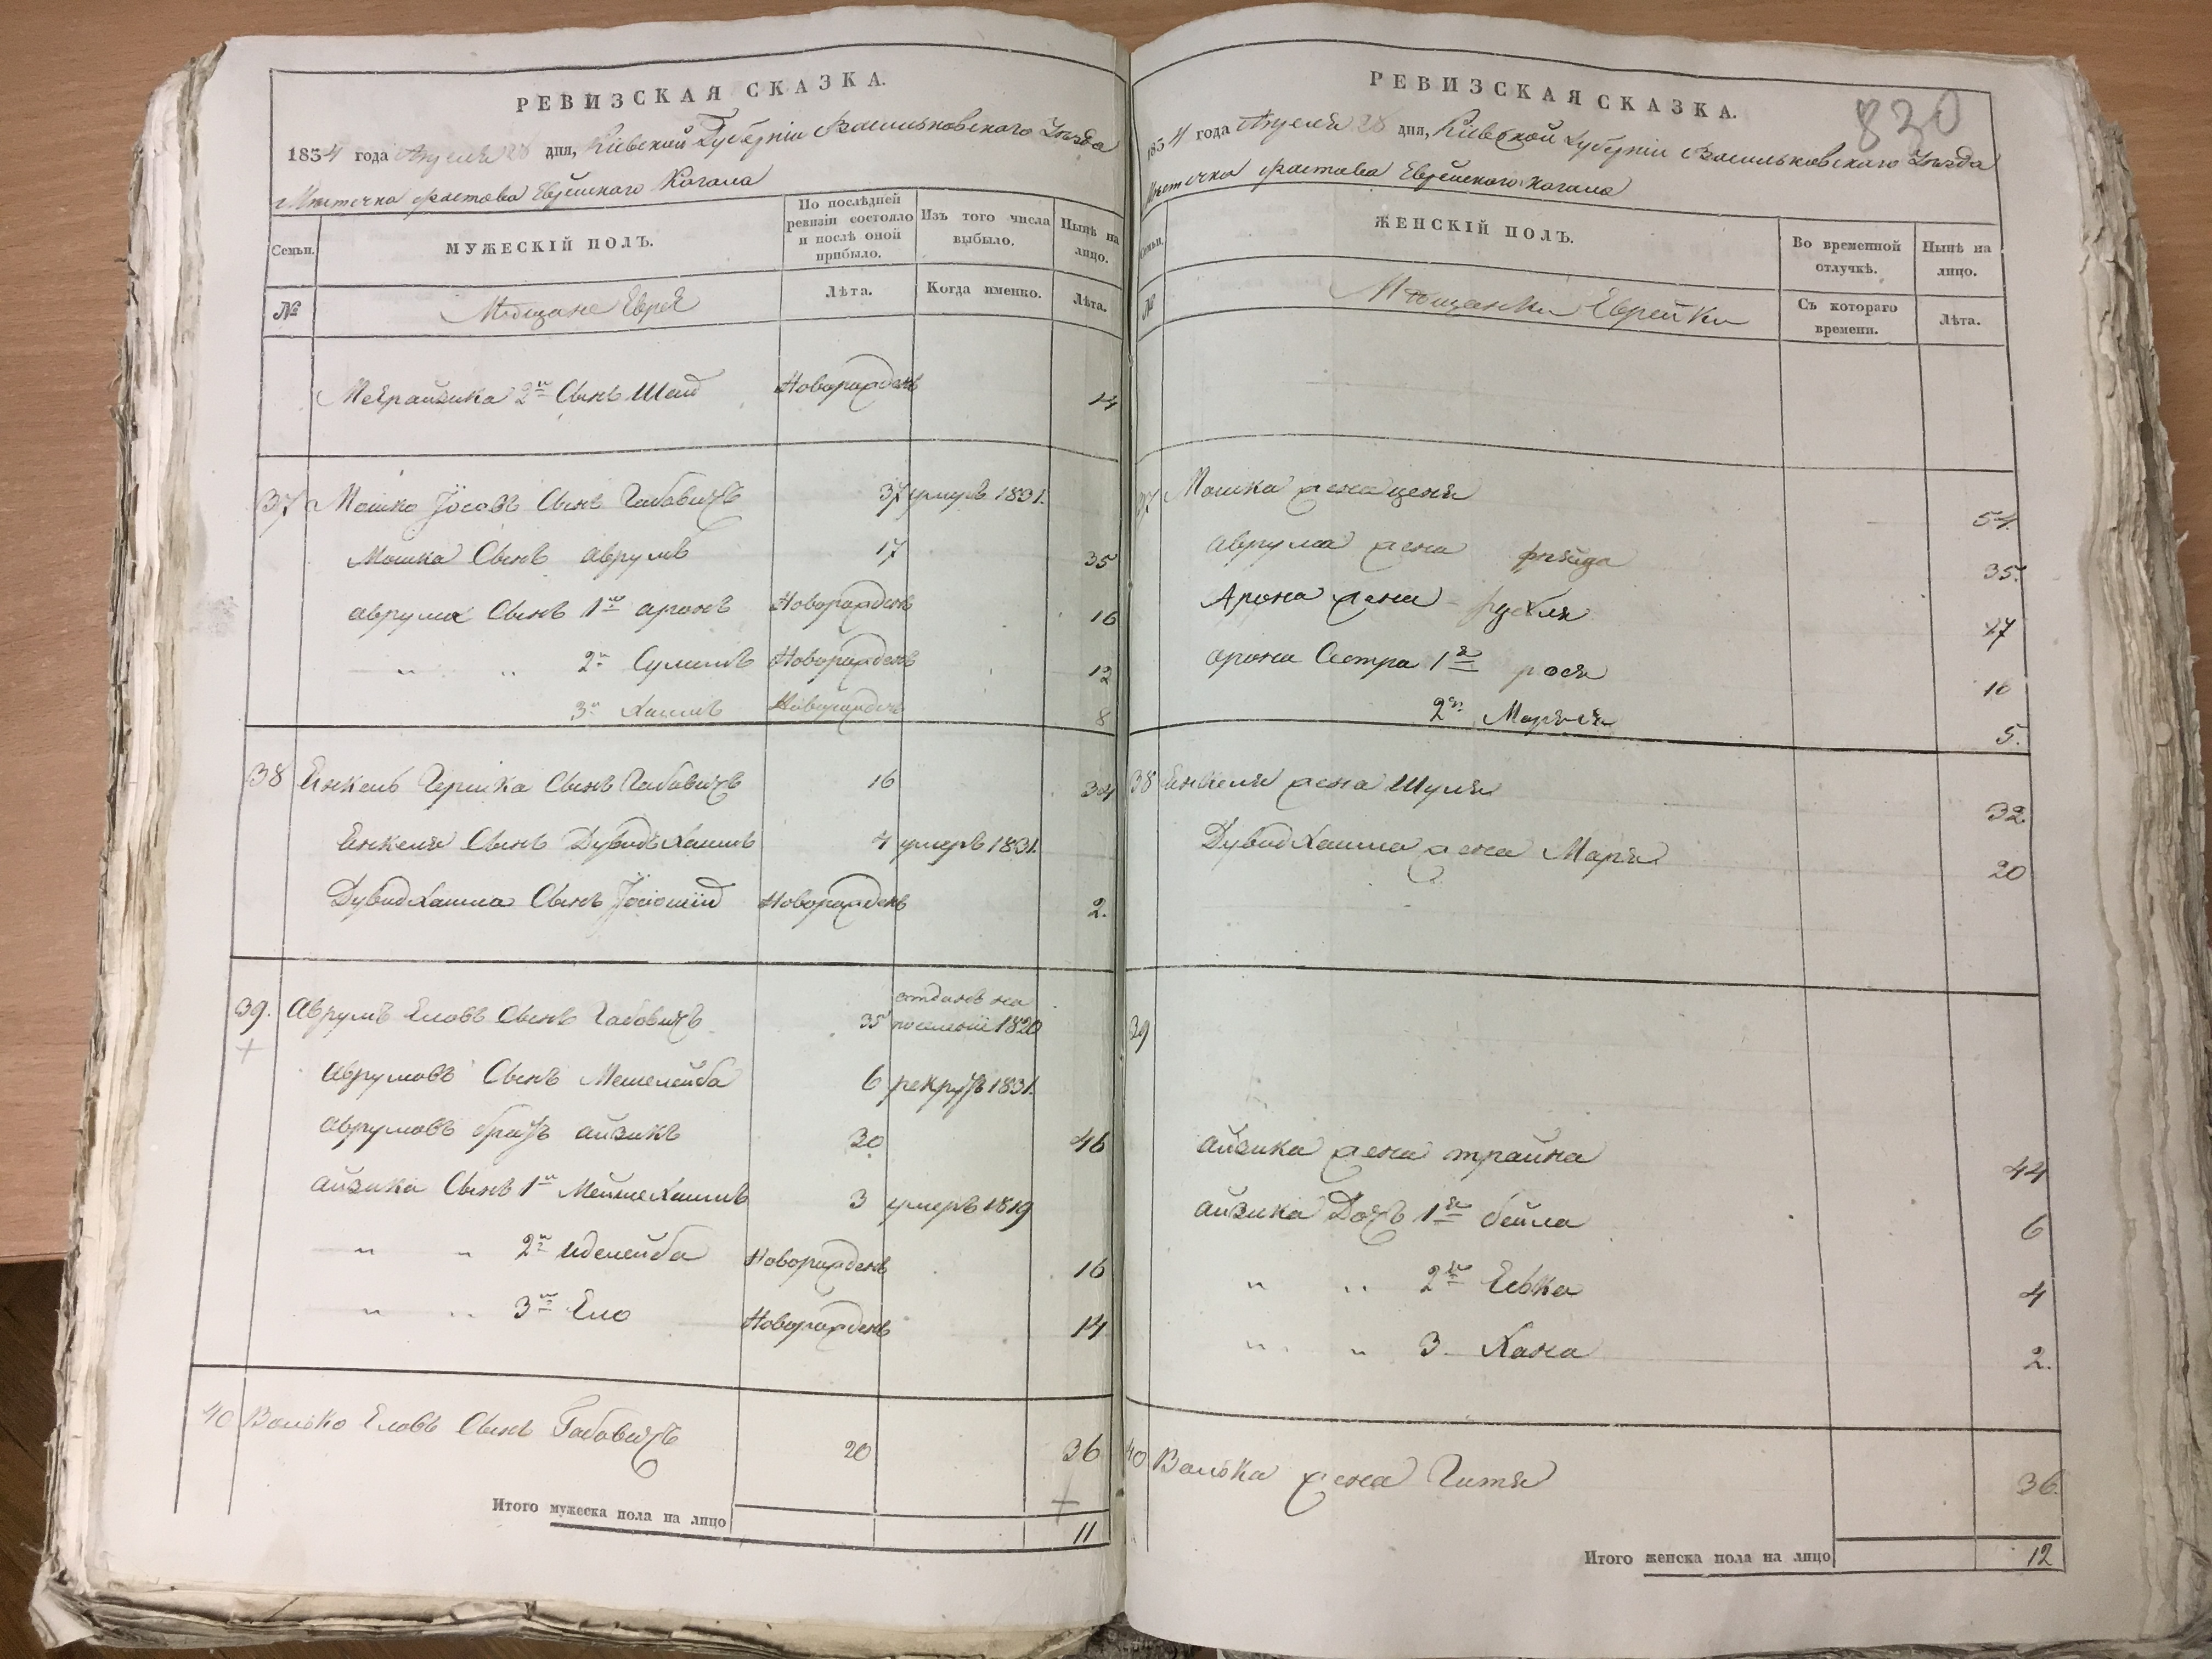 РЕВИЗСКАЯ СКАЗКА.
1834 года Апреля 28 дня, Кіевской Губерніи Васильковского Уезда
Местечка Фастова Еврейского Кагала
Семьи.
МУЖЕСКІЙ ПОЛЪ.
По послѣдней ревизіи состояло и послѣ оной прибыло.
Изъ того числа выбыло.
Нынѣ на лицо.
№
Мещане Евреи
Лѣта.
Когда именно.
Лѣта.
2й Сынъ Новорожденъ 14
37 Мошко Іосовъ Сынъ Габовичъ 37 умеръ 1831.
Мошка Сынъ Аврумъ 17 35
Аврума Сынъ 1й Аронъ Новорожденъ 16
" " 2й Сумишъ Новорожденъ 12
3й Хаимъ Новорожденъ 8
38 Енкель Гершка Сынъ Габовичъ 16 34
Енкеля Сынъ Дувидъ Хаимъ 4 умеръ 1831.
Дувид Хаима Сынъ Новорожденъ 2.
39. Аврумъ Еловъ Сынъ Габовичъ 35 отданъ на поселеніе 1820
Аврумовъ Сынъ Мешелейба 6 рекрутъ 1831.
Аврумовъ братъ Айзикъ 30 46
Айзика Сынъ 1й Мейше Хаимъ 3 умеръ 1819
" " 2й Иделейба Новорожденъ 16
" " 3й Ело Новорожденъ 14
40 Волько Еловъ Сынъ Габовичъ 20 36
Итого мужеска пола на лицо 11
830
РЕВИЗСКАЯ СКАЗКА.
1834 года Апреля 28 дня, Кіевской Губерніи Васильковского Уезда
Местечка Фастова Еврейского Кагала
Семьи.
ЖЕНСКІЙ ПОЛЪ.
Во временной отлучкѣ.
Нынѣ на лицо.
№
Мещанки Еврейки
Съ котораго времени.
Лѣта.
37 Мошка жена Ценя 54.
Аврума жена Фрейда 35.
Арона жена Рухля 17
Арона Сестра 1я Рося 10
2я Марьея 5.
38 Енкеля жена Шуля 32
Дувид Хаима жена Маря 20
39
Айзика жена Трайна 44
Айзика Дочь 1я Бейла 6
" " 2я Елька 4
" " 3. Хана 2.
40 Волька жена Гитя 36.
Итого женска пола на лицо 12